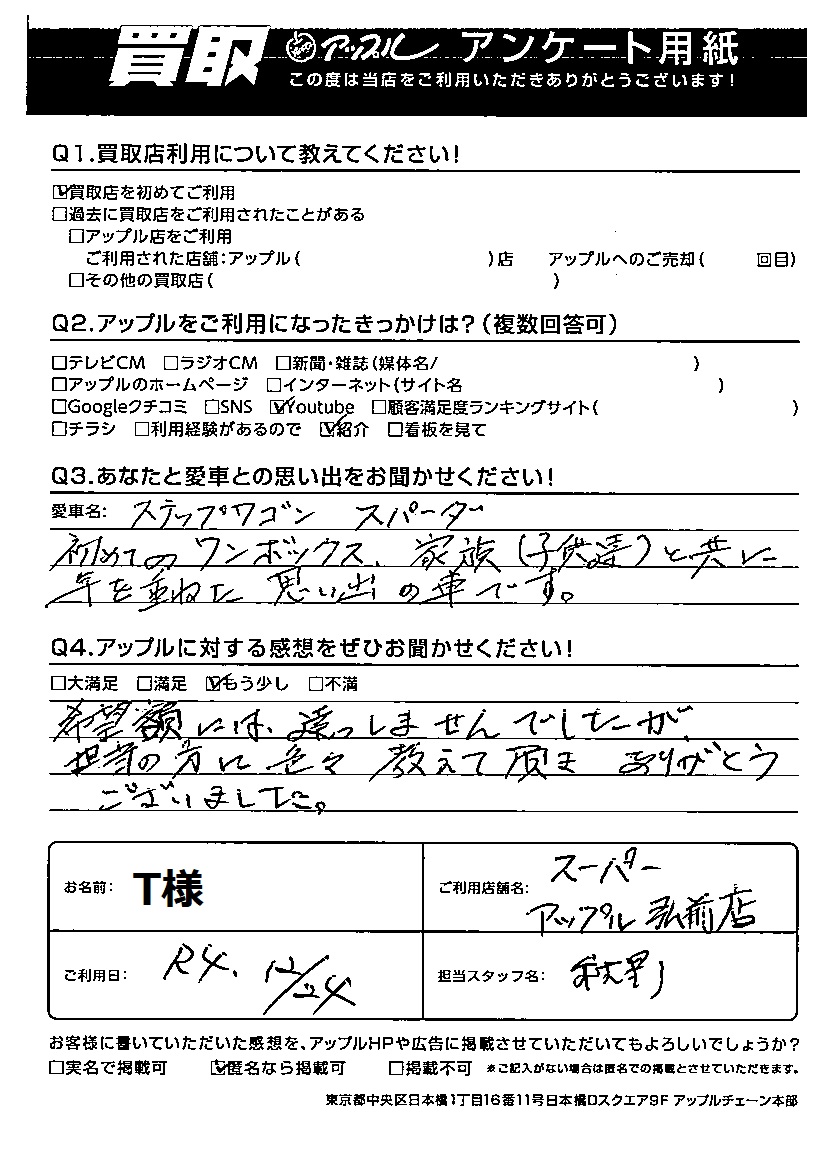 買取 アップル アンケート用紙
この度は当店をご利用いただきありがとうございます!
Q1.買取店利用について教えてください!
☑買取店を初めてご利用
□過去に買取店をご利用されたことがある
□アップル店をご利用
ご利用された店舗:アップル( )店 アップルへのご売却( 回目)
□その他の買取店( )
Q2.アップルをご利用になったきっかけは?(複数回答可)
□テレビCM □ラジオCM □新聞・雑誌(媒体名/ )
□アップルのホームページ □インターネット(サイト名 )
□Googleクチコミ □SNS ☑Youtube □顧客満足度ランキングサイト( )
□チラシ □利用経験があるので ☑紹介 □看板を見て
Q3.あなたと愛車との思い出をお聞かせください!
愛車名: ステップワゴン スパーダー
初めてのワンボックス、家族(子供達)と共に
年を重ねた 思い出の車です。
Q4.アップルに対する感想をぜひお聞かせください!
□大満足 □満足 ☑もう少し □不満
希望額には、達っしませんでしたが、
担当の方に色々 教えて頂ま ありがとう
ございました。
お名前: T様
ご利用店舗名: スーパー
アップル 弘前店
ご利用日: R4. 12/24
担当スタッフ名:
お客様に書いていただいた感想を、アップルHPや広告に掲載させていただいてもよろしいでしょうか?
□実名で掲載可 ☑匿名なら掲載可 □掲載不可 ※ご記入がない場合は匿名での掲載とさせていただきます。
東京都中央区日本橋1丁目16番11号日本橋Dスクエア9F アップルチェーン本部